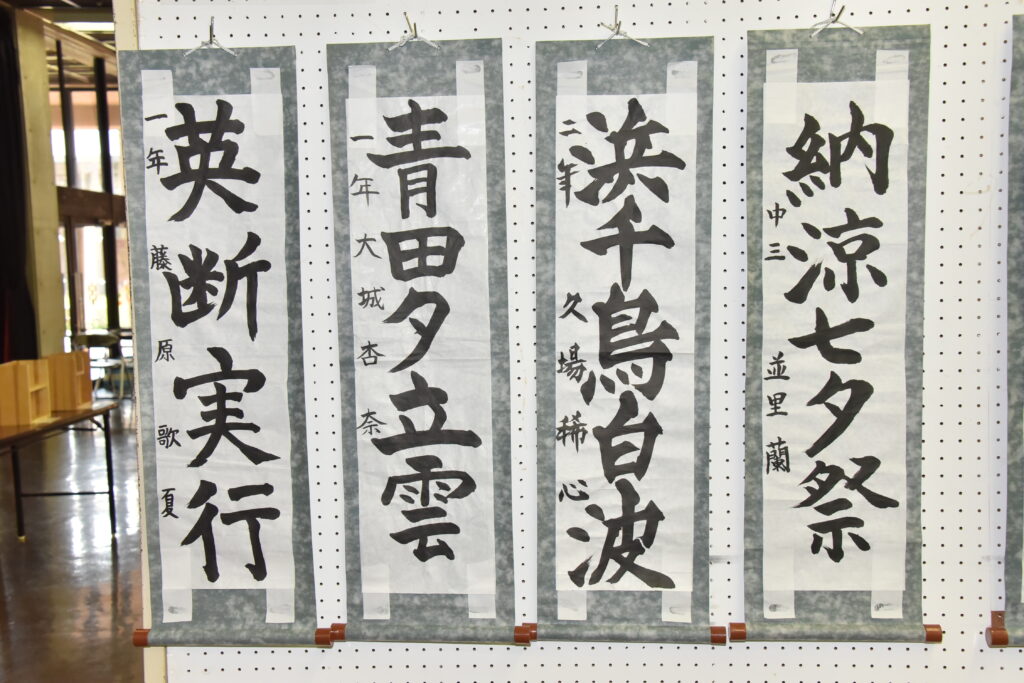 英断実行
一年 藤原歌夏
青田夕立雲
一年 大城杏奈
浜千鳥白波
二年 久場稀心
納涼七夕祭
中三 並里蘭